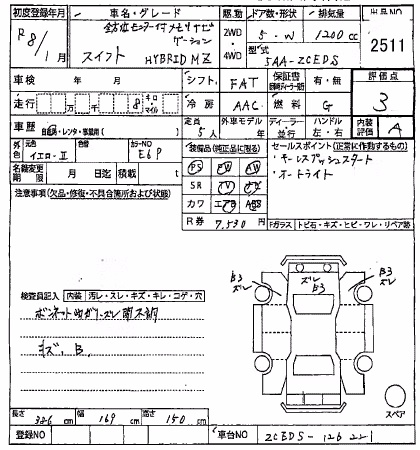 初度登録年月 車名・グレード 駆動 ドア数・形状 排気量 出品NO
R8/1月 スイフト HYBRID MZ 2WD・4WD 5・W 1200cc 2511
型式 5AA-ZCEDS
車検 年 月 シフト FAT 保証書 有・無 評価点
走行 万 千 8 キロ・マイル 冷房 AAC 燃料 G 3
車歴 自家用・レンタ・事業用( ) 定員 5人 外車モデル ディーラー・並行 ハンドル 左・右 内装評価 A
外色 元色 イエロー・II 色替 カラーNO E6P 装備品(純正品に限る) セールスポイント(正常に作動するもの)
名義変更期限 月 日迄 積載 t PS PW AW ・キーレスプッシュスタート
注意事項(欠品・修復・不具合箇所および状態) SR TV ナビ ・オートライト
カワ エアB ABS
R券 7,530円 Fガラス トビ石・キズ・ヒビ・ワレ・リペア跡
B3 ズレ
ズレ B3
B3 ズレ
検査員記入 内装 汚レ・スレ・キズ・キレ・コゲ・穴
キズ、B
スペア
長さ 386cm 幅 169cm 高さ 150cm
登録NO 車台NO ZCEDS-126221